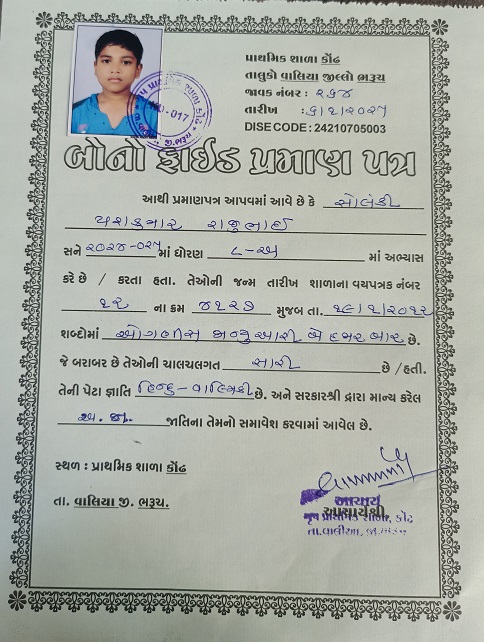 પ્રાથમિક શાળા કોંઢ
તાલુકો વાલિયા જીલ્લો ભરૂચ
જાવક નંબર : ૨૬૪
તારીખ : ૬/૧/૨૦૨૫
DISE CODE : 24210705003
બોનો ફાઇડ પ્રમાણ પત્ર
આથી પ્રમાણપત્ર આપવમાં આવે છે કે સોલંકી
યશકુમાર રાજુભાઈ
સને ૨૦૨૪-૦૨૫ માં ધોરણ ૮-અ માં અભ્યાસ
કરે છે / કરતા હતા. તેઓની જન્મ તારીખ શાળાના વયપત્રક નંબર
૧૨ ના ક્રમ ૪૧૨૭ મુજબ તા. ૧૯/૧/૨૦૧૨
શબ્દોમાં ઓગણીસ જાન્યુઆરી બે હજાર બાર છે.
જે બરાબર છે તેઓની ચાલચલગત સારી છે /હતી.
તેની પેટા જ્ઞાતિ હિન્દુ-વાલ્મિકી છે. અને સરકારશ્રી દ્રારા માન્ય કરેલ
અ. જા. જાતિના તેમનો સમાવેશ કરવામાં આવેલ છે.
સ્થળ : પ્રાથમિક શાળા કોંઢ
આચાર્ય
આચાર્યશ્રી
તા. વાલિયા જી. ભરૂચ.